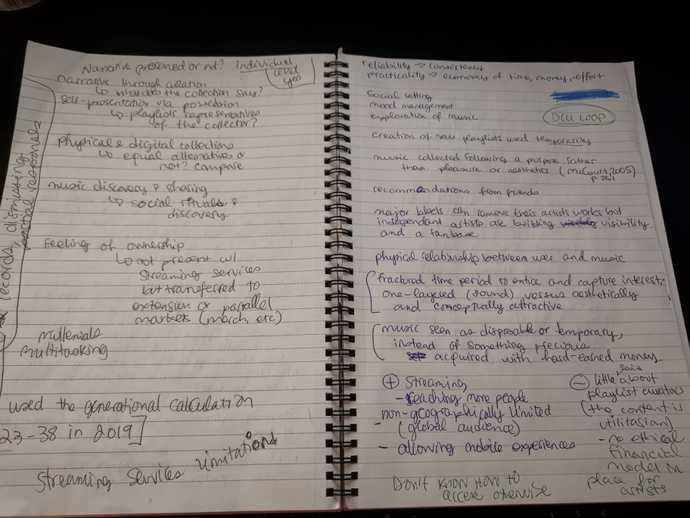 Narrative presented or not? individual
level
yes
narrative through curation
↳ what does the collection say?
self-presentation via possession
↳ playlists representatives
of the collector?
physical & digital collections
↳ equal alternatives or
not? compare
music discovery & sharing
↳ social rituals &
discovery
Feeling of ownership
↳ not present w/
streaming services
but transferred to
extension or parallel
markets (merch etc)
millenials
multitasking
used the generational calculation
23-38 in 2019]
Streaming Services limitations
records, digital
verbal responses
reliability → consistency
practicality → economy of time, money, effort
social setting
mood management
exploration of music
DCU LOOP
creation of new playlists used temporarily
music collected following a purpose rather
than pleasure or aesthetics (McCourt, 2005)
recommendations from friends
major labels can remove their artists works but
independent artists are building visibility
and a fanbase
physical relationship between user and music
fractured time period to entice and capture interest;
one-layered (sound) versus aesthetically
and conceptually attractive
music seen as disposable or temporary,
instead of something precious
acquired with hard-earned money
⊕ Streaming
- reaching more people
non-geographically limited
- (global audience)
- allowing mobile experiences
Don't know how to
access otherwise
⊖ little said about
playlist curators
(the content is
utilitarian)
- no ethical
financial
model in
place for
artists